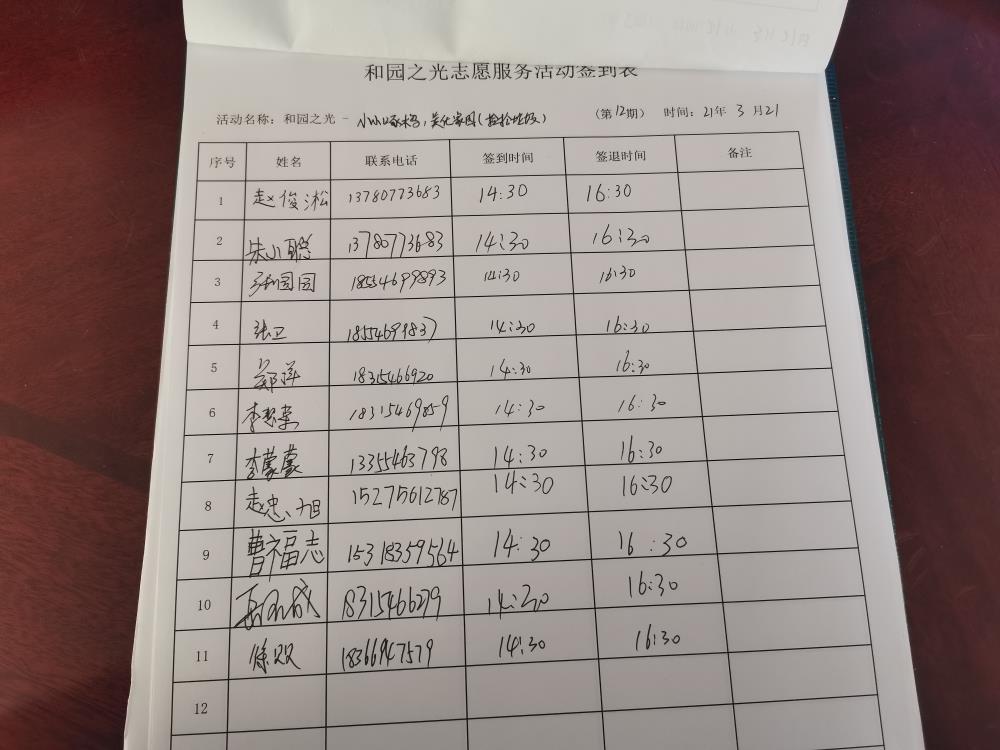 和园之光志愿服务活动签到表
活动名称：和园之光 - 小小啄木鸟，美化家园（捡拾垃圾） （第12期） 时间：21年 3月21
序号 姓名 联系电话 签到时间 签退时间 备注
1 赵俊淞 13780773683 14:30 16:30
2 朱小聪 13780773683 14:30 16:30
3 园园 18554699893 14:30 16:30
4 张卫 18554699837 14:30 16:30
5 郑萍 18315466920 14:30 16:30
6 李 18315469859 14:30 16:30
7 李蒙蒙 13355463798 14:30 16:30
8 赵忠旭 15275612787 14:30 16:30
9 曹福志 15318359564 14:30 16:30
10 18315466279 14:30 16:30
11 徐双 18366947579 14:30 16:30
12